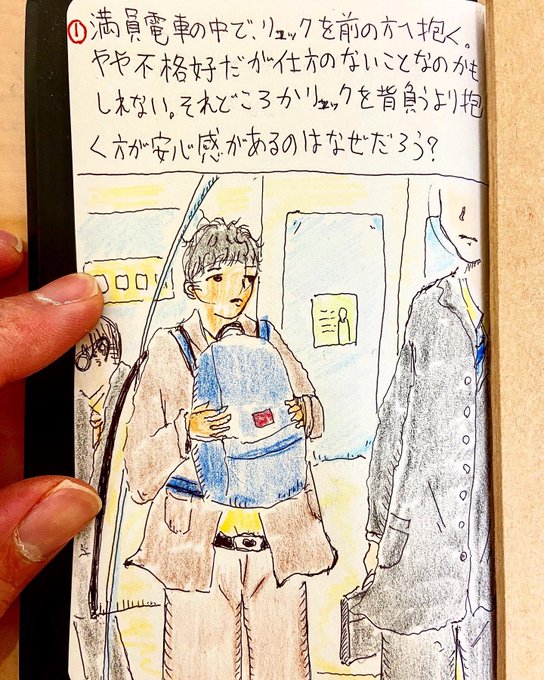 ① 満員電車の中で、リュックを前の方へ抱く。
やや不格好だが仕方のないことなのかも
しれない。それどころかリュックを背負うより抱
く方が安心感があるのはなぜだろう?